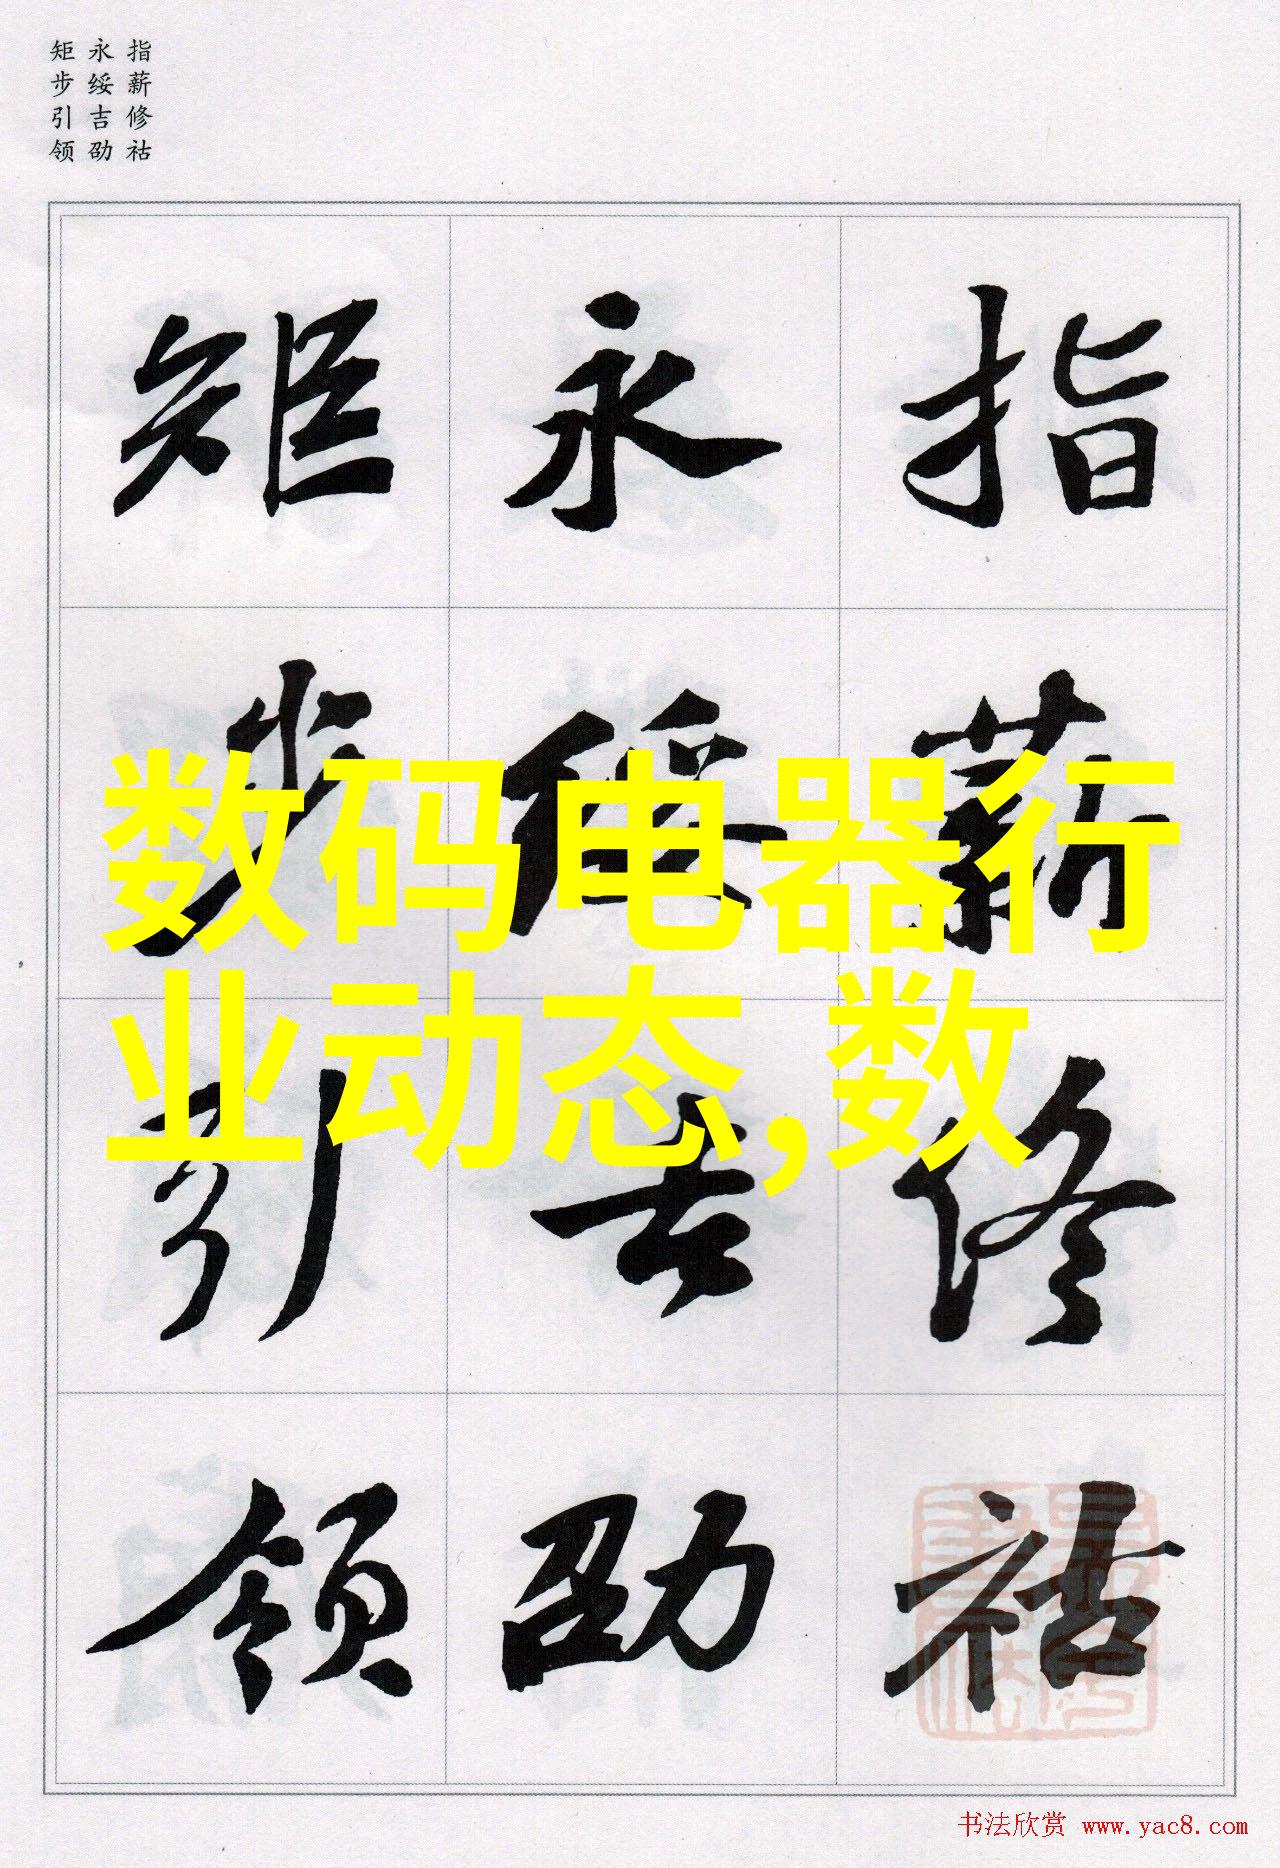 指薪修祜
永绥吉劭
矩步引领
指薪修祜
永绥吉劭
矩步引领
数码电器行
业动态,数
书法欣赏 www.yac8.com